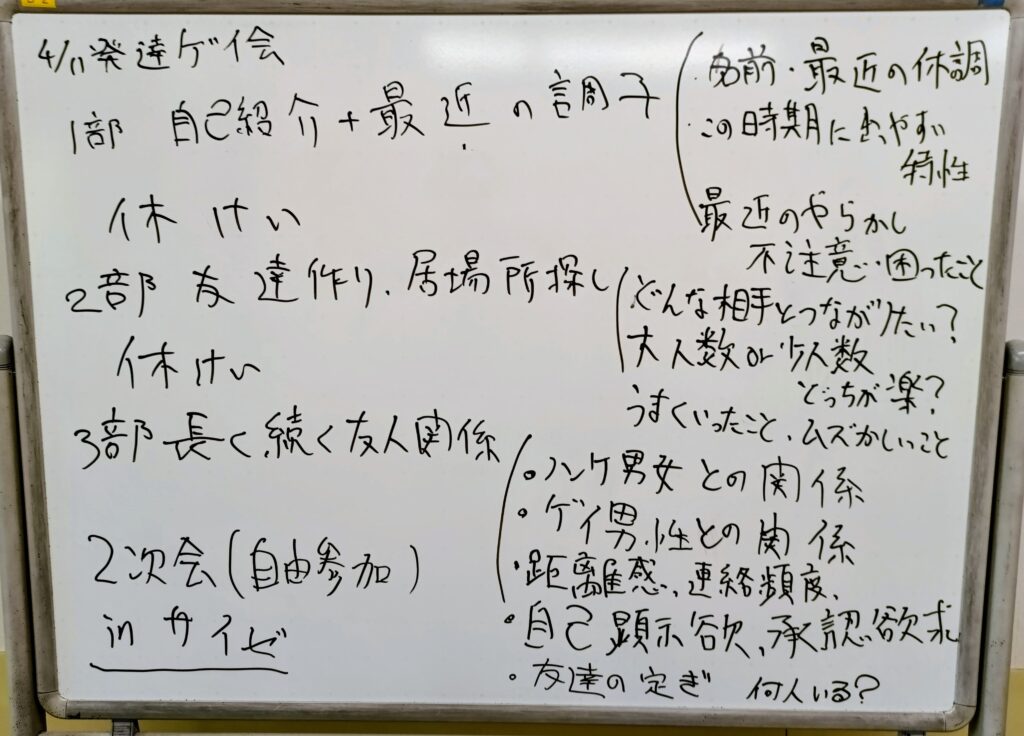 4/11発達ゲイ会
1部 自己紹介+最近の調子
名前・最近の体調
この時期に出やすい
特性
最近のやらかし
不注意・困ったこと
休けい
2部 友達作り、居場所探し
どんな相手とつながりたい?
大人数or少人数
どっちが楽?
うまくいったこと、ムズかしいこと
休けい
3部 長く続く友人関係
・ノンケ男女との関係
・ゲイ男性との関係
・距離感、連絡頻度、
・自己顕示欲、承認欲求
・友達の定ぎ 何人いる?
2次会(自由参加)
in サイゼ